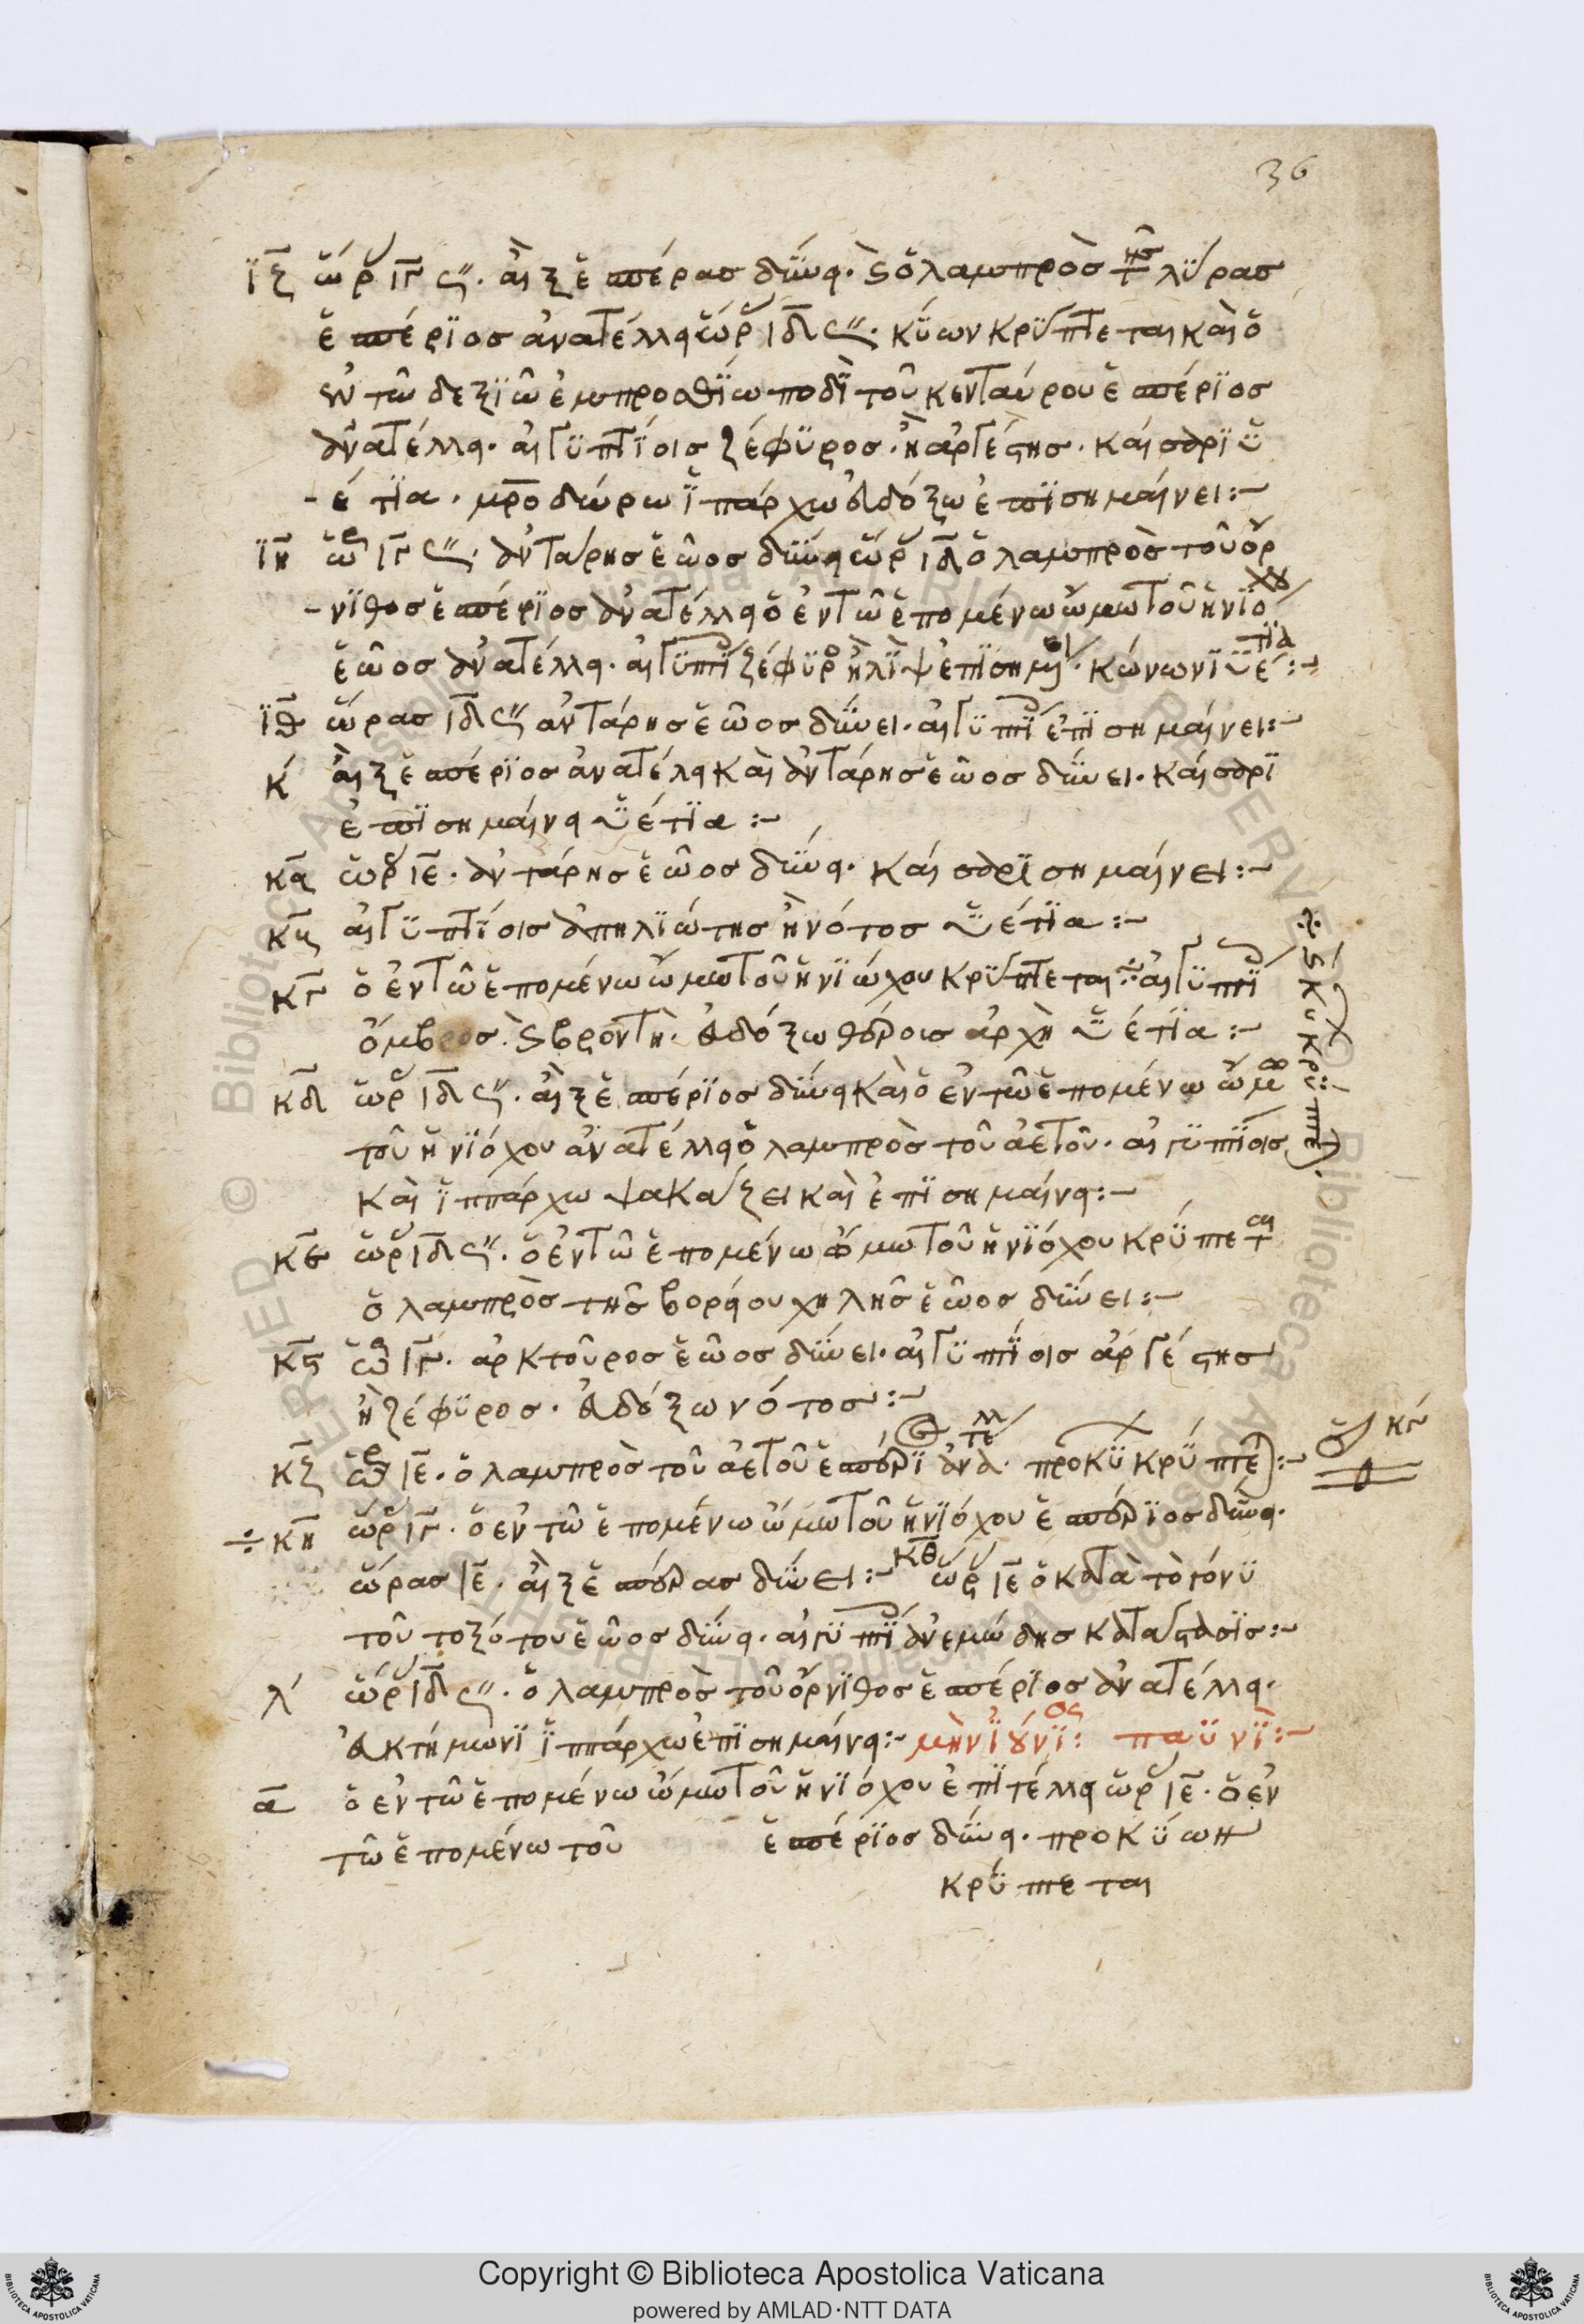 36
ιζ ὥρ ιγ ϛ´´. αἲξ ἑσπέρας δύνει. καὶ ὁ λαμπρὸς τῆς λύρας
ἑσπέριος ἀνατέλλει ὥρ ιδ ϛ´´. κύων κρύπτεται καὶ ὁ
ἐν τῶ δεξιῶ ἐμπροσθίω ποδὶ τοῦ κενταύρου ἑσπέριος
ἀνατέλλει. αἰγυπτίοις ζέφυρος. ἢ ἀργέστης. καίσαρι ὑ
-έτια. μροδώρω ἱπάρχω εὐδόξω ἐπισημαίνει:~
ιη ὥρ ιγ ϛ´´. ἀντάρης ἑῶος δύνει ὥρ ιδ ὁ λαμπρὸς τοῦ ὄρ
-νιθος ἑσπέριος ἀνατέλλει ὁ ἐν τῶ ἑπομένω ὤμω τοῦ ἡνιόχου
ἑῶος ἀνατέλλει. αἰγυπτί ζέφυρο ἢ λὶψ ἐπισημαί. κώνωνι ὑέτια:~
ιθ ὥρας ιδ ϛ´´ ἀντάρης ἑῶος δύνει. αἰγυπτί ἐπισημαίνει:~
κ αἲξ ἑσπέριος ἀνατέλει καὶ ἀντάρης ἑῶος δύνει. καίσαρι
ἐπισημαίνει ὑέτια:~
κα ὥρ ιε. ἀντάρης ἑῶος δύνει. καίσαρι σημαίνει:~
κβ αἰγυπτίοις ἀπηλιώτης ἢ νότος ὑέτια:~
κγ ὁ ἐν τῶ ἑπομένω ὤμω τοῦ ἡνιώχου κρύπτεται. αἰγυπτί
ὄμβρος. καὶ βροντὴ. εὐδόξω θέροις ἀρχὴ ὑέτια:~
κδ ὥρ ιδ ϛ´´. αἲξ ἑσπέριος δύνει καὶ ὁ ἐν τῶ ἑπομένω ὤμω
τοῦ ἡνιόχου ἀνατέλλει ὁ λαμπρὸς τοῦ ἀετοῦ. αἰγυπτίοις
καὶ ἱππάρχω ψακάζει καὶ ἐπισημαίνει:~
κε ὥρ ιδ ϛ´´. ὁ ἐν τῶ ἑπομένω ὤμω τοῦ ἡνιόχου κρύπτεται
ὁ λαμπρὸς τῆς βορείου χηλῆς ἑῶος δύνει:~
κϛ ὥρ ιγ. ἀρκτοῦρος ἑῶος δύνει. αἰγυπτίοις ἀργέστης
ἢ ζέφυρος. εὐδόξω νότος:~
κζ ὥρ ιε. ὁ λαμπρὸς τοῦ ἀετοῦ ἑσπέρι ἀνατέλλ. προκύ κρύπτε:~
κη ὥρ ιγ. ὁ ἐν τῶ ἑπομένω ὤμω τοῦ ἡνιόχου ἑσπέριος δύνει.
ὥρας ιε. αἲξ ἑσπέρας δύνει:~ κθ ὥρ ιε ὁ κατὰ τὸ γόνυ
τοῦ τοξότου ἑῶος δύνει. αἰγυπτί ἀνεμώδης κατάστασις:~
λ ὥρ ιδ ϛ´´. ὁ λαμπρὸς τοῦ ὄρνιθος ἑσπέριος ἀνατέλλει.
εὐκτήμωνι ἱππάρχω ἐπισημαίνει:~ μὴν ἰούνιος: παϋνὶ:~
α ὁ ἐν τῶ ἑπομένω ὤμω τοῦ ἡνιόχου ἐπιτέλλει ὥρ ιε. ὁ ἐν
τῶ ἑπομένω τοῦ ἑσπέριος δύνει. προκύων
κρύπτεται
Copyright © Biblioteca Apostolica Vaticana
powered by AMLAD·NTT DATA